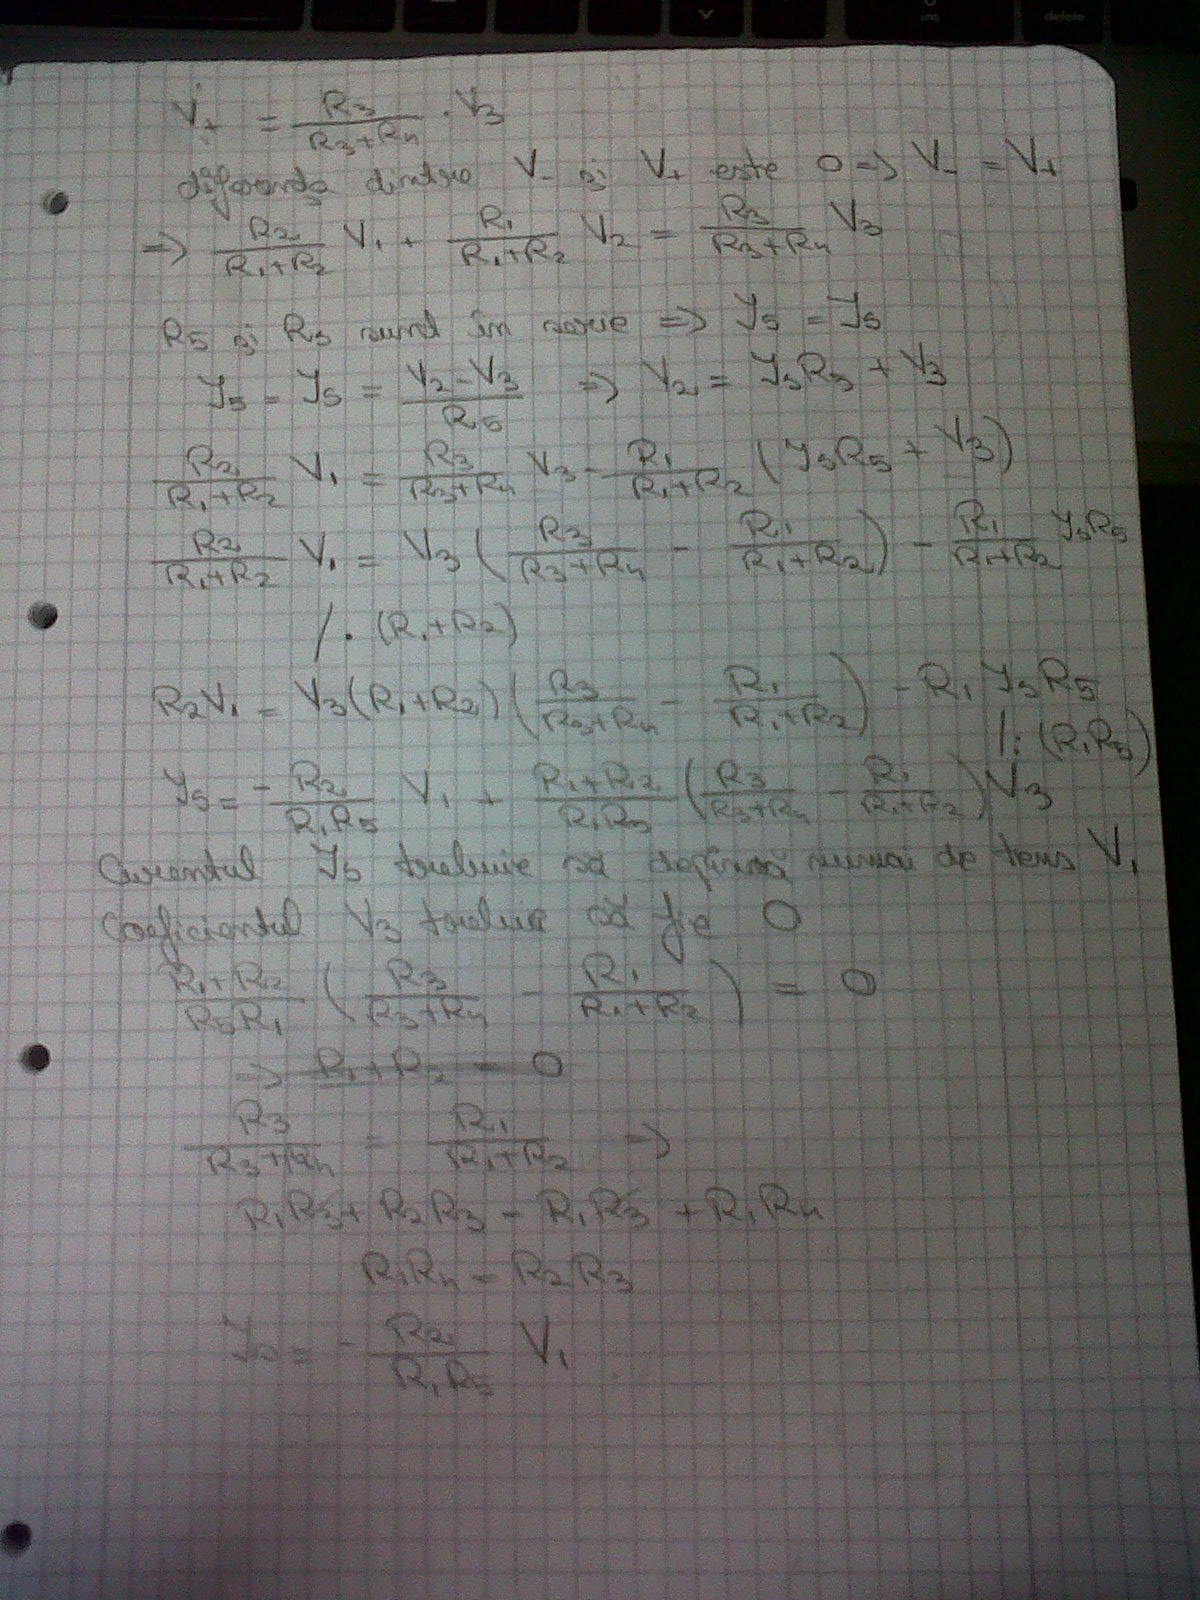 V₊ = R3/(R3+R4) · V3
diferența dintre V₋ și V₊ este 0 => V₋ = V₊
=> R2/(R1+R2) V1 + R1/(R1+R2) V2 = R3/(R3+R4) V3
R5 și sunt în serie =>
= (V2-V3)/R5 => V2 = + V3
R2/(R1+R2) V1 = R3/(R3+R4) V3 - R1/(R1+R2) (I5R5 + V3)
R2/(R1+R2) V1 = V3 (R3/(R3+R4) - R1/(R1+R2)) - R1/(R1+R2) I5R5
/ · (R1+R2)
R2V1 = V3(R1+R2) (R3/(R3+R4) - R1/(R1+R2)) - R1 I5R5
/: (R1R5)
I5 = - R2/(R1R5) · V1 + (R1+R2)/(R1R5) (R3/(R3+R4) - R1/(R1+R2)) V3
Curentul trebuie să numai de tens V1
Coeficientul V3 trebuie să fie 0
(R1+R2)/(R5R1) (R3/(R3+R4) - R1/(R1+R2)) = 0
=> R1+R2 = 0
R3/(R3+R4) = R1/(R1+R2) =>
R1R3 + R2R3 = R1R3 + R1R4
R1R4 = R2R3
= - R2/(R1R5) V1